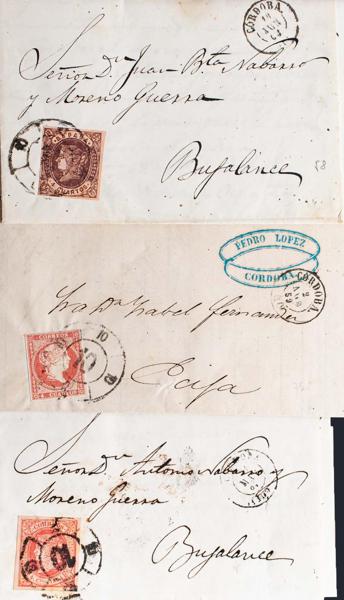 CÓRDOBA
Señor Dn Juan Bta Nabarro
y Moreno Guerra
Bujalance
ESPAÑA
4 CUARTOS
58
PEDRO LOPEZ
CORDOBA
CORDOBA
59
Sra Da Isabel fernandez
10
Ecija
4 CUARTOS
Señor Dn Antonio Nabarro y
Moreno Guerra
10
Bujalance